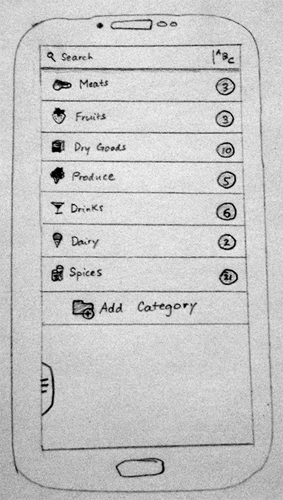 Search ABC
Meats 3
Fruits 3
Dry Goods 10
Produce 5
Drinks 6
Dairy 2
Spices 21
Add Category